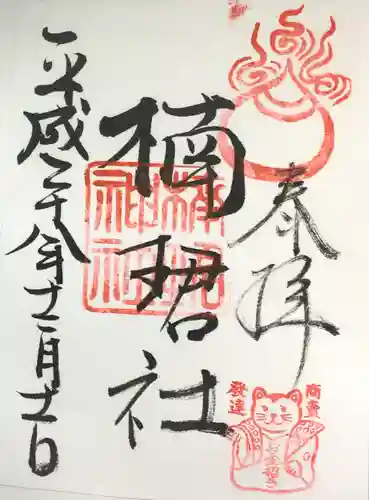 奉拝
楠珺社
平成二十八年十二月十一日
商売
発達